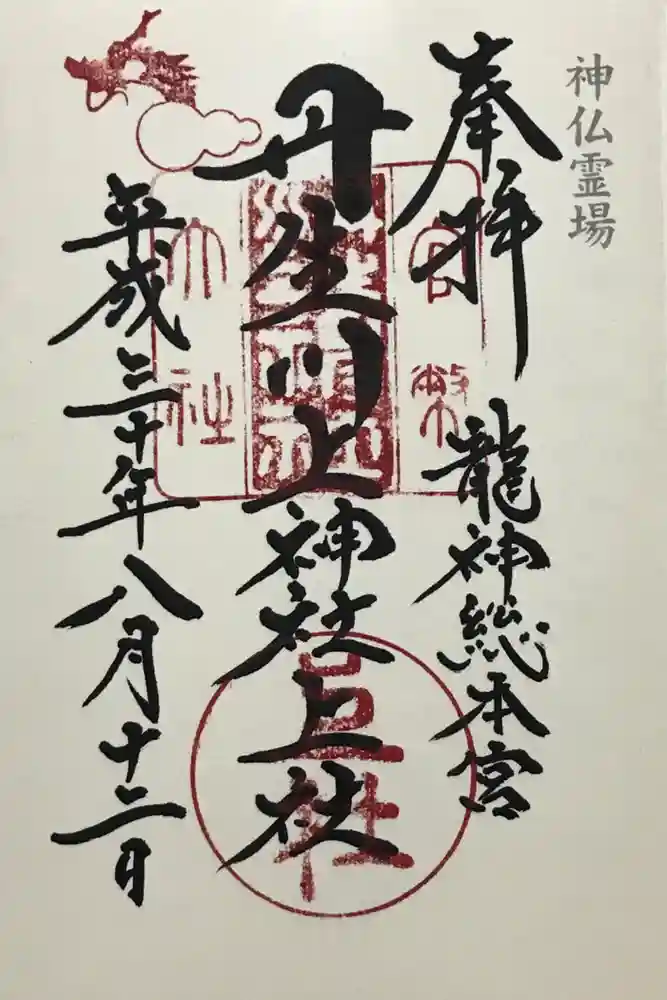 神仏霊場
奉拝
龍神総本宮
丹生川上神社上社
官幣大社
上社
平成三十年八月十二日